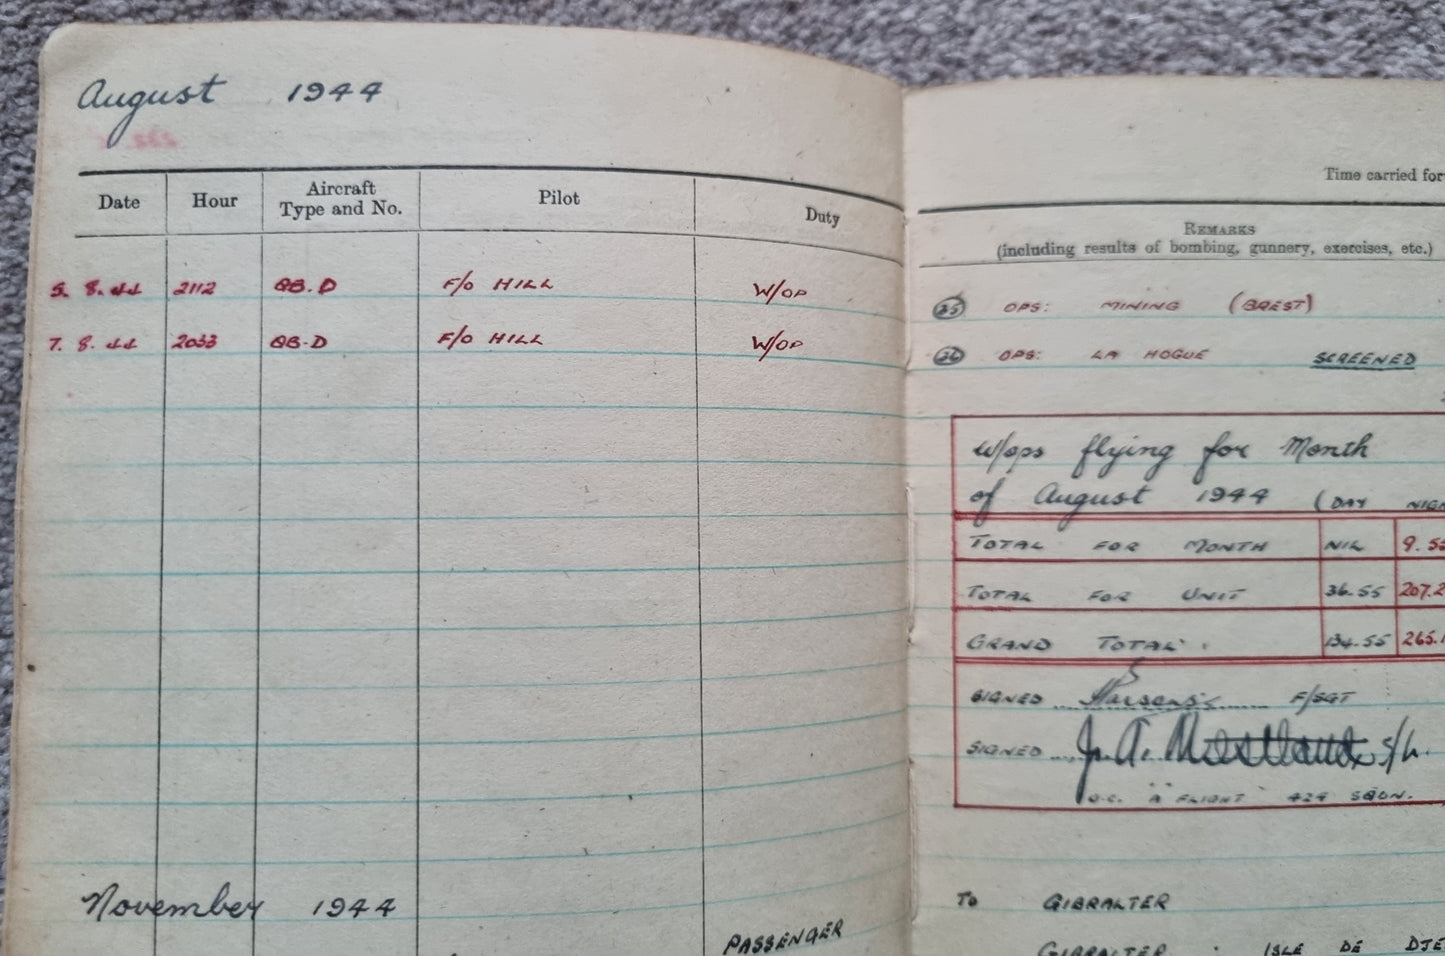 August 1944
Date Hour Aircraft Type and No. Pilot Duty
5. 8. 44 2112 QB.D F/O HILL W/OP
7. 8. 44 2033 QB-D F/O HILL W/OP
November 1944
PASSENGER
Time carried for
REMARKS
(including results of bombing, gunnery, exercises, etc.)
35 OPS: MINING (BREST)
36 OPS: LA HOGUE SCREENED
W/ops flying for Month
of August 1944 (DAY NIG
TOTAL FOR MONTH NIL 9.5
TOTAL FOR UNIT 36.55 207.2
GRAND TOTAL 134.55 265.1
SIGNED F/SGT
SIGNED J. A. S/L.
O.C. "A" FLIGHT 424 SQDN.
TO GIBRALTER
GIBRALTER ISLE DE DJE